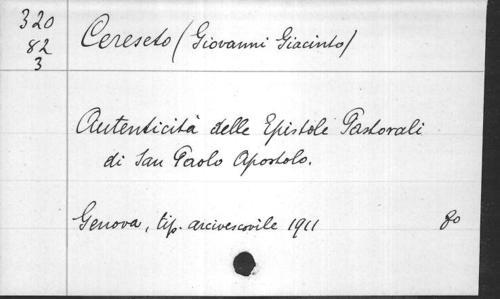 320
82
3
Cereseto (Giovanni Giacinto)
Autenticità delle Epistole Pastorali
di San Paolo Apostolo.
Genova, tip. arcivescovile 1911 8o